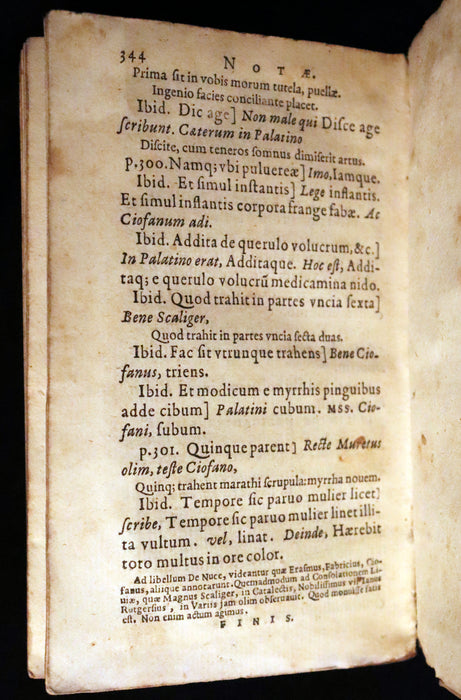 344 NOTÆ.
Prima sit in vobis morum tutela, puellæ.
Ingenio facies conciliante placet.
Ibid. Dic age] Non male qui Disce age
scribunt. Cæterum in Palatino
Discite, cum teneros somnus dimiserit artus.
p.300. Namq; vbi puluereæ] Imo, Iamque.
Ibid. Et simul instantis] Lege inflantis.
Et simul inflantis corpora frange fabæ. Ac
Ciofanum adi.
Ibid. Addita de querulo volucrum, &c.]
In Palatino erat, Additaque. Hoc est, Addi-
taq; e querulo volucrũ medicamina nido.
Ibid. Quod trahit in partes vncia sexta]
Bene Scaliger,
Quod trahit in partes vncia secta duas.
Ibid. Fac sit vtrunque trahens] Bene Cio-
fanus, triens.
Ibid. Et modicum e myrrhis pinguibus
adde cibum] Palatini cubum. MSS. Cio-
fani, subum.
p.301. Quinque parent] Recte Muretus
olim, teste Ciofano,
Quinq; trahent marathi scrupula: myrrha nouem.
Ibid. Tempore sic paruo mulier licet]
scribe, Tempore sic paruo mulier linet illi-
ta vultum. vel, linat. Deinde, Hærebit
toto multus in ore color.
Ad libellum De Nuce, videantur quæ Erasmus, Fabricius, Cio-
fanus, aliique annotarunt. Quemadmodum ad Consolationem Li-
uiæ, quæ Magnus Scaliger, in Catalectis, Nobilissimus vir Ianus
Rutgersius, in Variis jam olim obseruauit. Quod monuisse satis
est. Non enim actum agimus.
FINIS.